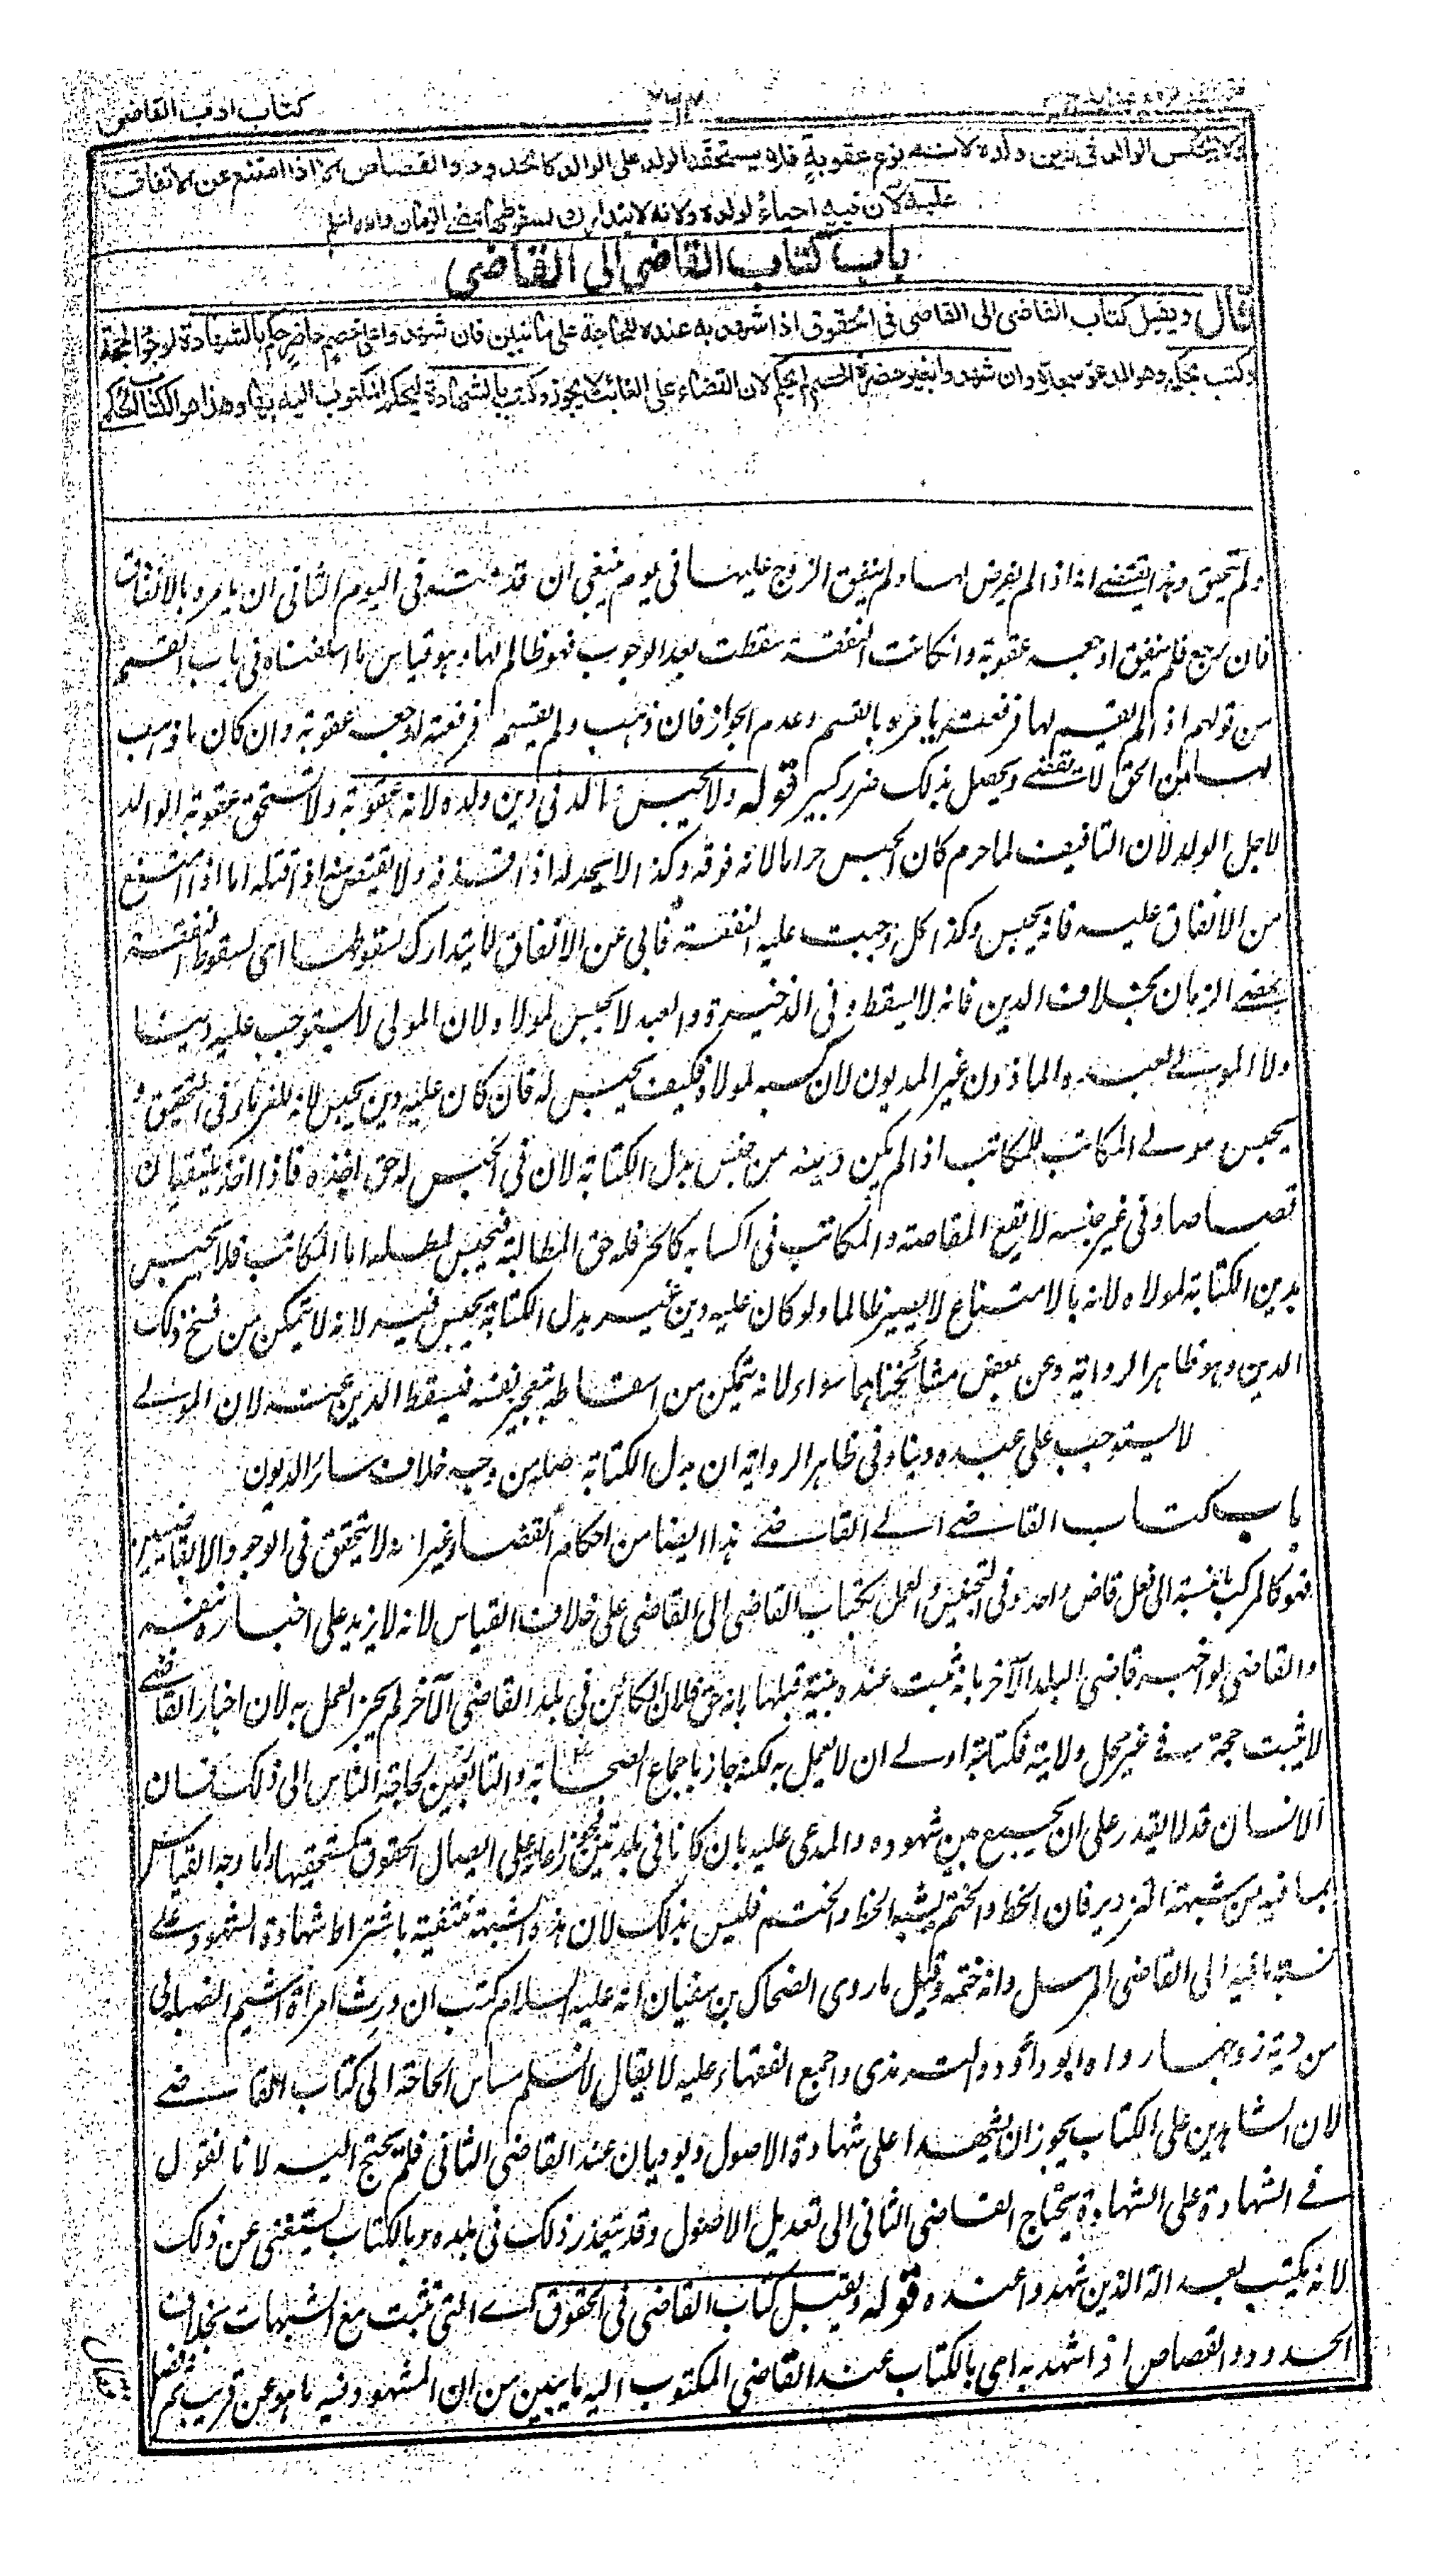 كتاب ادب القاضى
ولا يحبس الوالد فى دين ولده لانه نوع عقوبة فلا يستحقه الولد على الوالد كالحدود والقصاص الا اذا امتنع عن الانفاق
عليه لان فيه احياء لولده ولانه لا يتدارك لسقوطها بمضى الزمان والله اعلم
باب كتاب القاضى الى القاضى
قال ويقبل كتاب القاضى الى القاضى فى الحقوق اذا شهد به عنده للحاجة على ما نبين فان شهدوا على خصم حاضر حكم بالشهادة لوجود الحجة
وكتب بحكمه وهو المدعو سجلا وان شهدوا بغير حضرة الخصم لم يحكم لان القضاء على الغائب لا يجوز وكتب بالشهادة ليحكم المكتوب اليه بها وهذا هو الكتاب الحكمى
ولم تحيق وهذا يقتضے انه اذا لم يفرض لها ولم ينفق الزوج عليها فى يوم ينبغى ان قدمته فى اليوم الثانى ان يامره بالانفاق
فان رجع فلم ينفق اوجعه عقوبة وان كانت النفقة سقطت بعد الوجوب فهو ظالم لها وهو قياس ما اسلفناه فى باب القسم
من قولهم اذا لم يقسم لها فرفعته يامره بالقسم وعدم الجواز فان ذهب ولم يقسم فرفعته اوجعه عقوبة وان كان ما ذهب
لها من الحق لا يقضے ويحصل بذلك ضرر كبير قوله ولا يحبس الوالد فى دين ولده لانه عقوبة ولا يستحق عقوبة الوالد
لاجل الولد لان التافيف لما حرم كان الحبس حراما لانه فوقه وكذا لا يحد له اذا قذفه ولا يقتص منه اذا قتله اما اذا امتنع
من الانفاق عليه فانه يحبس وكذا كل من وجبت عليه النفقة فابى عن الانفاق لا يتدارك لسقوطها اى لسقوط النفقة
بمضے الزمان بخلاف الدين فانه لا يسقط وفى الذخيرة والعبد لا يحبس لمولاه لان المولى لا يستوجب عليه دينا
ولا المولے لعبده الماذون غير المديون لان كسبه لمولاه فكيف يحبس له فان كان عليه دين يحبس لانه للغرماء فى التحقيق و
يحبس مولے المكاتب للمكاتب اذا لم يكن دينه من جنس بدل الكتابة لان فى الجنس له حق اخذه فاذا اخذ يلتقيان
قصاصا وفى غير جنسه لا يقع المقاصة والمكاتب فى اكسابه كالحر فله حق المطالبة فيحبس لمطله اما المكاتب فلا يحبس
بدين الكتابة لمولاه لانه بالامتناع لا يصير ظالما ولو كان عليه دين غير بدل الكتابة يحبس فيه لانه لا يتمكن من فسخ ذلك
الدين وهو ظاهر الرواية وعن بعض مشائخنا هما سواء لانه يتمكن من اسقاطه بتعجيز نفسه فيسقط الدين عنه لان المولے
لا يستوجب على عبده دينا وفى ظاهر الرواية ان بدل الكتابة صلة من وجه خلاف سائر الديون
باب كتاب القاضے الے القاضے هذا ايضا من احكام القضاء غير انه لا يتحقق فى الوجود الا بقاضيين
فهو كالمركب بالنسبة الى فعل قاض واحد وفى التجنيس والعمل بكتاب القاضى الى القاضى على خلاف القياس لانه لا يزيد على اخباره بنفسه
والقاضى لو اخبر قاضى البلد الآخر بانه ثبت عنده بينة قبلها بانه حق فلان الكائن فى بلد القاضى الآخر لم يجز العمل به لان اخبار القاضے
لا يثبت حجة فے غير محل ولايته فكتابته اولے ان لا يعمل به لكنه جاز باجماع الصحابة والتابعين لحاجة الناس الى ذلك فان
الانسان قد لا يقدر على ان يجمع بين شهوده والمدعى عليه بان كانا فى بلدتين فجوز اعانة على ايصال الحقوق لمستحقيها واما وجه القياس
بما فيه من شبهة التزوير فان الخط والختم يشبه الخط والختم فليس بذلك لان هذه الشبهة منتفية باشتراط شهادة الشهود علے
نسبة ما فيه الى القاضى المرسل وانه ختمه وقيل ما روى الضحاك بن سفيان انه عليه السلام كتب ان ورث امراة اشيم الضبابى
من دية زوجها رواه ابو داؤد والترمذى واجمع الفقهاء عليه لا يقال لا نسلم مساس الحاجة الى كتاب القاضے
لان الشاهدين على الكتاب يجوز ان يشهدا على شهادة الاصول ويوديان عند القاضى الثانى فلم يحتج اليه لانا نقول
فے الشهادة على الشهادة يحتاج القاضى الثانى الى تعديل الاصول وقد يتعذر ذلك فى بلده وبالكتاب يستغنى عن ذلك
لانه يكتب بعدالة الذين شهدوا عنده قوله ويقبل كتاب القاضى فى الحقوق اے التى تثبت مع الشبهات بخلاف
الحدود والقصاص اذا شهد به اى بالكتاب عند القاضى المكتوب اليه ما يبين من ان المشهود فيه ما هو عن قريب ثم فصل
فقال